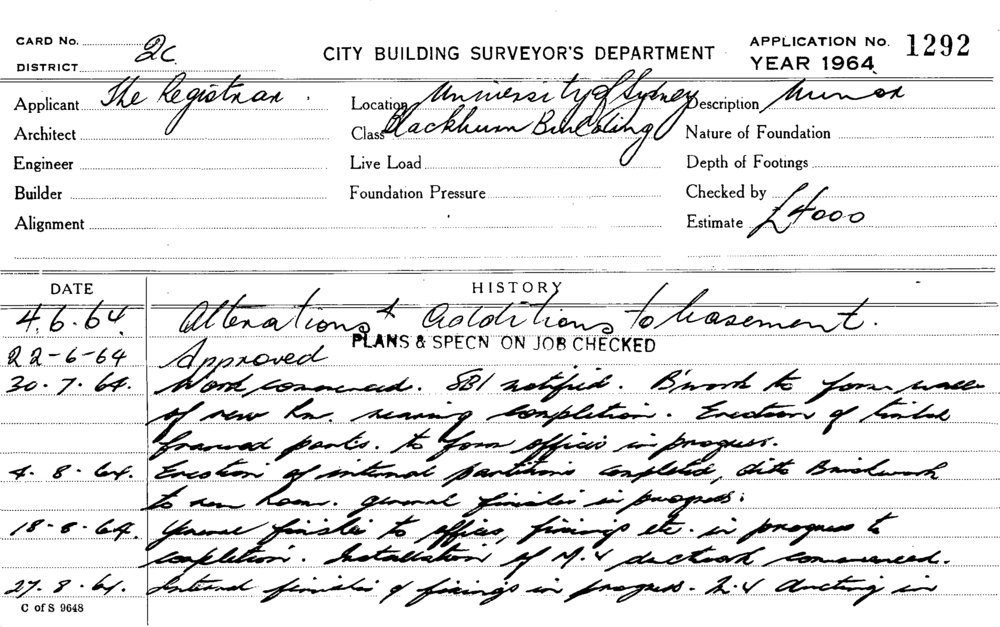 CARD No.
DISTRICT 2c.
CITY BUILDING SURVEYOR'S DEPARTMENT
APPLICATION No. 1292
YEAR 1964
Applicant The Registrar Location University of Sydney Description Minor
Architect Class Blackburn Building Nature of Foundation
Engineer Live Load Depth of Footings
Builder Foundation Pressure Checked by
Alignment Estimate £4000
DATE HISTORY
4.6.64. Alterations & additions to basement.
PLANS & SPECN ON JOB CHECKED
22-6-64 Approved
30.7.64. Work commenced. SBI notified. B'work to form walls
of new Rm. nearing completion. Erection of timber
framed parts. to form offices in progress.
4.8.64. Erection of internal partitions completed, ditto Brickwork
to new room. general finishes in progress.
18.8.64. General finishes to offices, fixings etc. in progress to
completion. Installation of M.V ductwork commenced.
27.8.64. Internal finishes & fixings in progress. M.V ducting in
C of S 9648